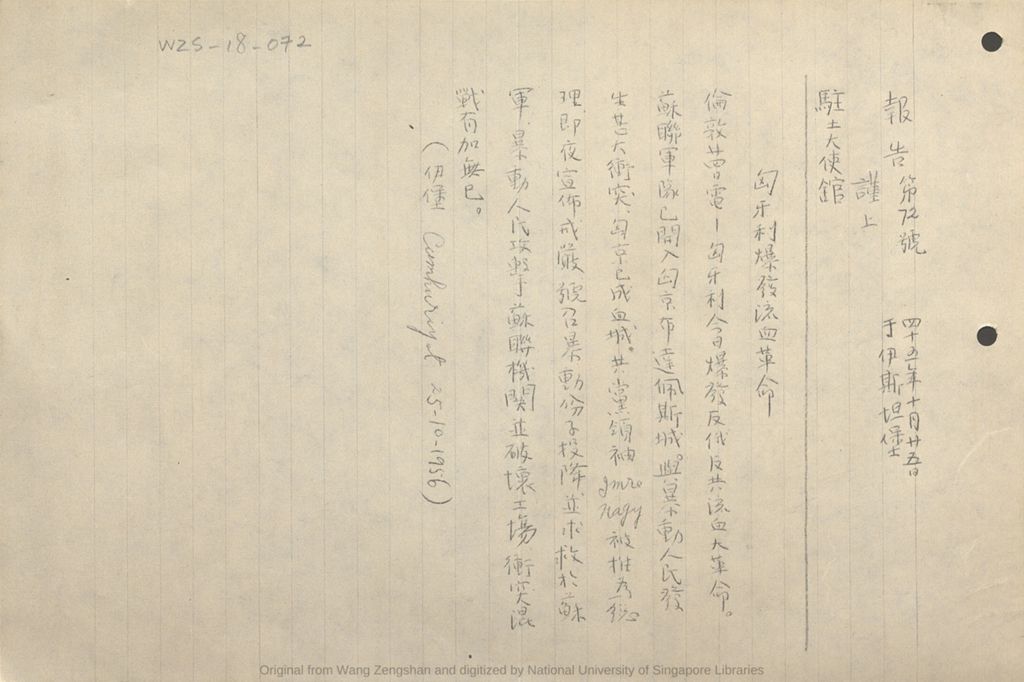 WZS-18-072
報告第72號
四十五年十月廿五日
于伊斯坦堡
謹上
駐土大使舘
匈牙利爆發流血革命
倫敦廿四日電—匈牙利今日爆發反俄反共流血大革命。
蘇聯軍隊已開入匈京布達佩斯城。與暴動人民發
生甚大衝突、匈京已成血城。共黨領袖 Imre Nagy 被推為總
理、即夜宣佈戒嚴、號召暴動份子投降、並求救於蘇
軍、暴動人民攻擊蘇聯機關並破壞工塲、衝突混
戰有加無已。
(伊堡 Cumhuriyet 25-10-1956)
Original from Wang Zengshan and digitized by National University of Singapore Libraries